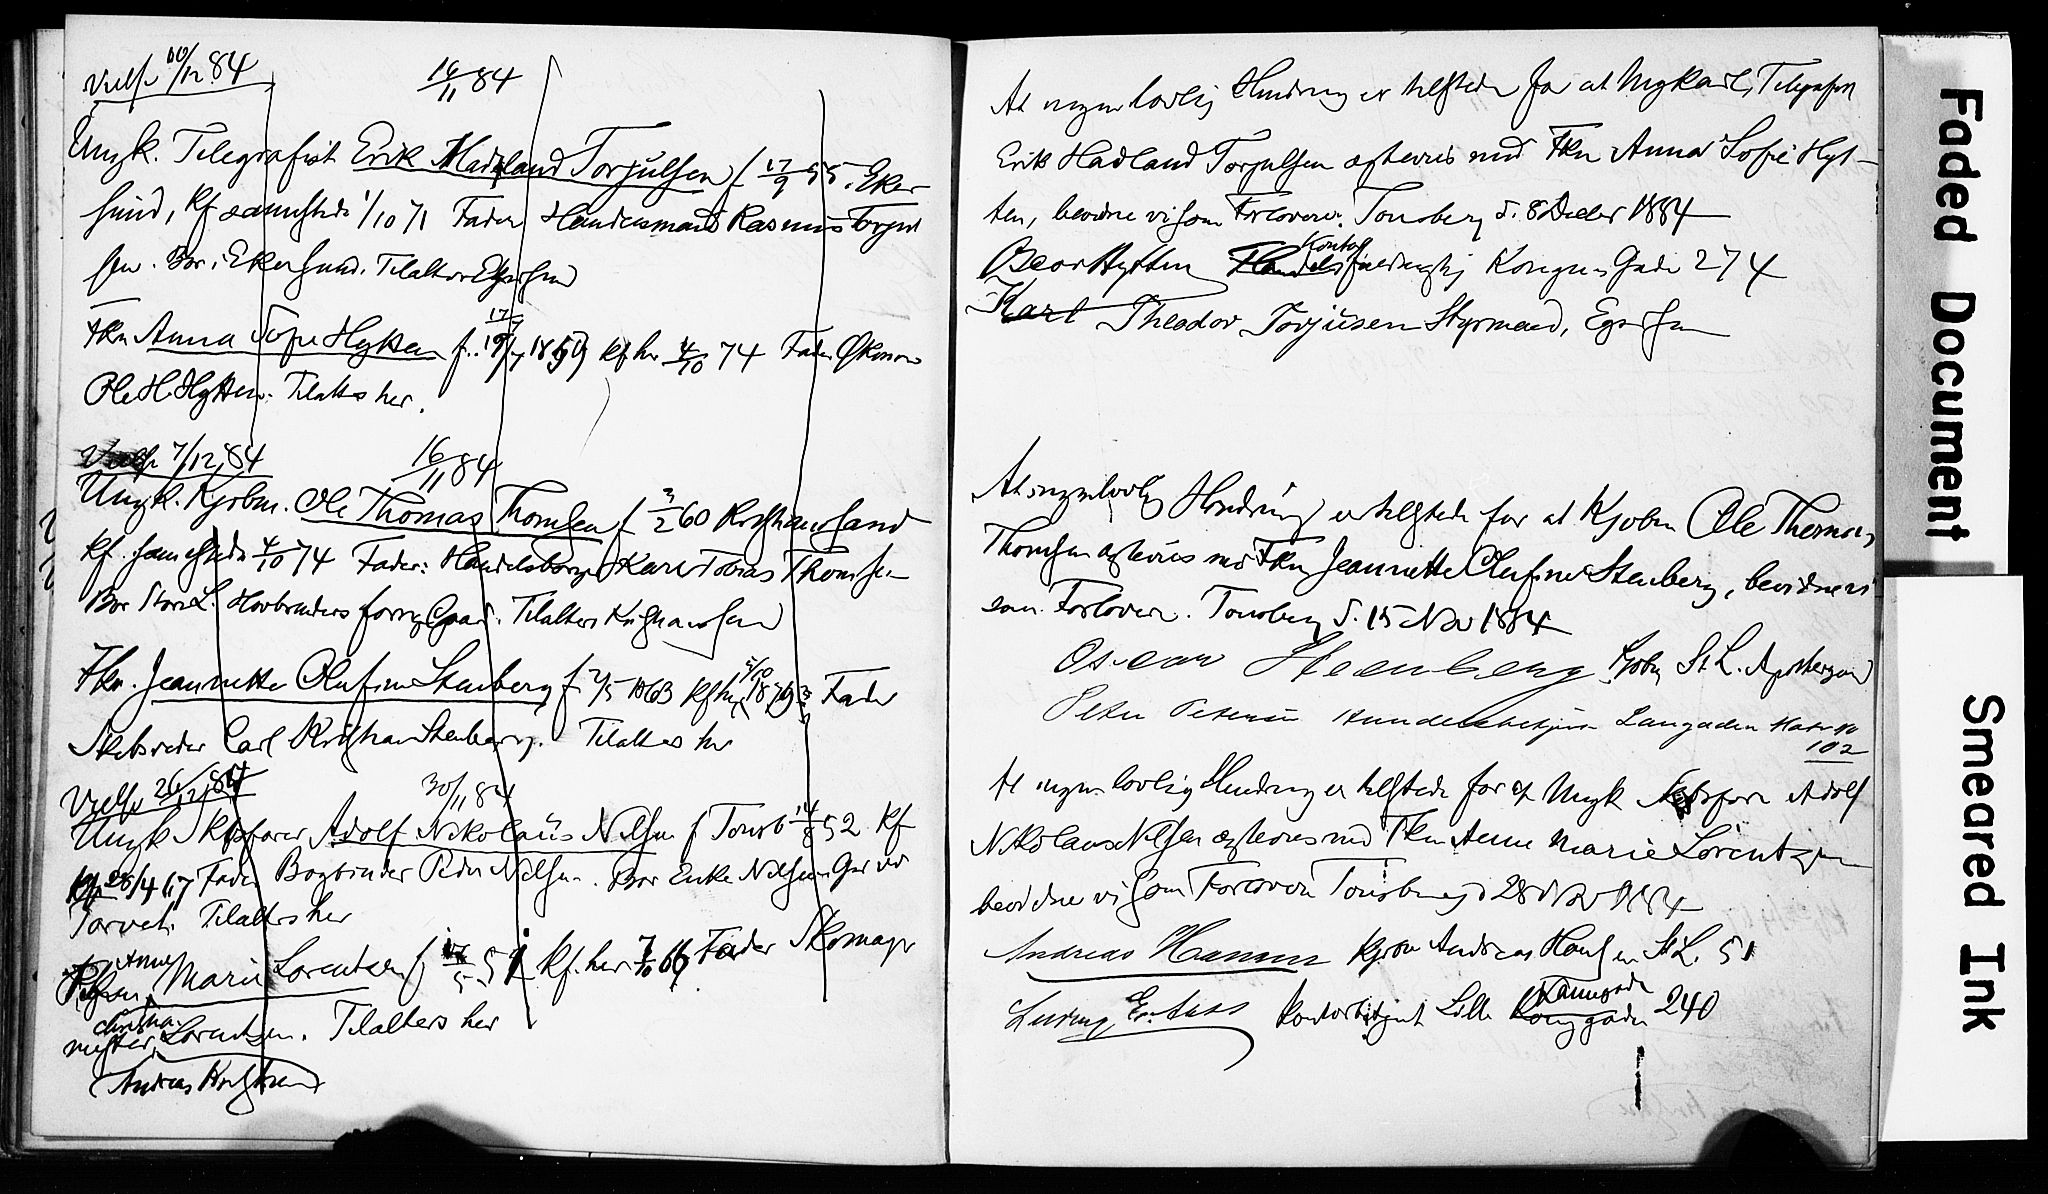 Vielse 10/12 84 16/11 84
Ungk. Telegrafist Erik Hadland Torjulsen f 17/9 55. Eker-
sund, kf sammesteds 1/10 71 Fader Handelsmand Rasmus Torjul
sen. Bor i Ekersund. Tilalters Egersund
Fkn Anna Sofie Hytten f. 17/7 18 kf her 4/10 74 Fader Økonom
Ole H. Hytten. Tilalters her.
Vielse 7/12 84 16/11 84
Ungk. Kjøbm. Ole Thomas Thomsen f 3/2 60 Kristianssand
kf. sammesteds 4/10 74 Fader: Handelsborger Karl Tobias Thomsen
Bor Store L. Tilalters Kristianssand
Fkn. Jeannette Olufine Stenberg f. 2/5 1863 kf her 5/10 187 Fader
Skibsreder Carl Kristian Stenberg. Tilalters her
Vielse 26/12 84 30/11 84
Ungk Skibsfører Adolf Nikolaus Nilsen f Tønsb 14/8 52 Kf
28/4 67 Fader Bogbinder Peder Nilsen. Bor Enke Nilsens Gaard ved
Torvet. Tilalters her
Anne Marie Lorentzen f 51 kf. her Fader Skomager
mester Lorentzen. Tilalters her
Christian
Andreas
At ingen lovlig Hindring er tilstede for at Ungkarl, Telegrafist
Erik Hadland Torjulsen ægtevies med Fkn Anna Sofie Hyt-
ten, bevidne vi som Forlovere. Tønsberg d. 8 Decbr 1884
Kontor
Hytten Handelsfuldmægtig Kongens Gade 274
Karl Theodor Torjusen Styrmand, Egersund
At ingen lovlig Hindring er tilstede for at Kjøbm Ole Thomas
Thomsen ægtevies med Fkn Jeannette Olufine Stenberg, bevidne vi
som Forlovere. Tønsberg d. 15 Nov 1884
Oscar Steenberg Kjøbm St. L. Apothergaard
Peter Petersen Langgaden Matr No
102
At ingen lovlig Hindring er tilstede for at Ungk Skibsfører Adolf
Nikolaus Nilsen ægtevies med Fkn Anne Marie Lorentzen
bevidne vi som Forlovere Tønsberg d 28 Nov 1884
Andreas Hansen Kjøbm Andreas Hansen St L. 51
Ludvig Kontorbetjent Lille Kongsgaden 240
Faded Document
Smeared Ink